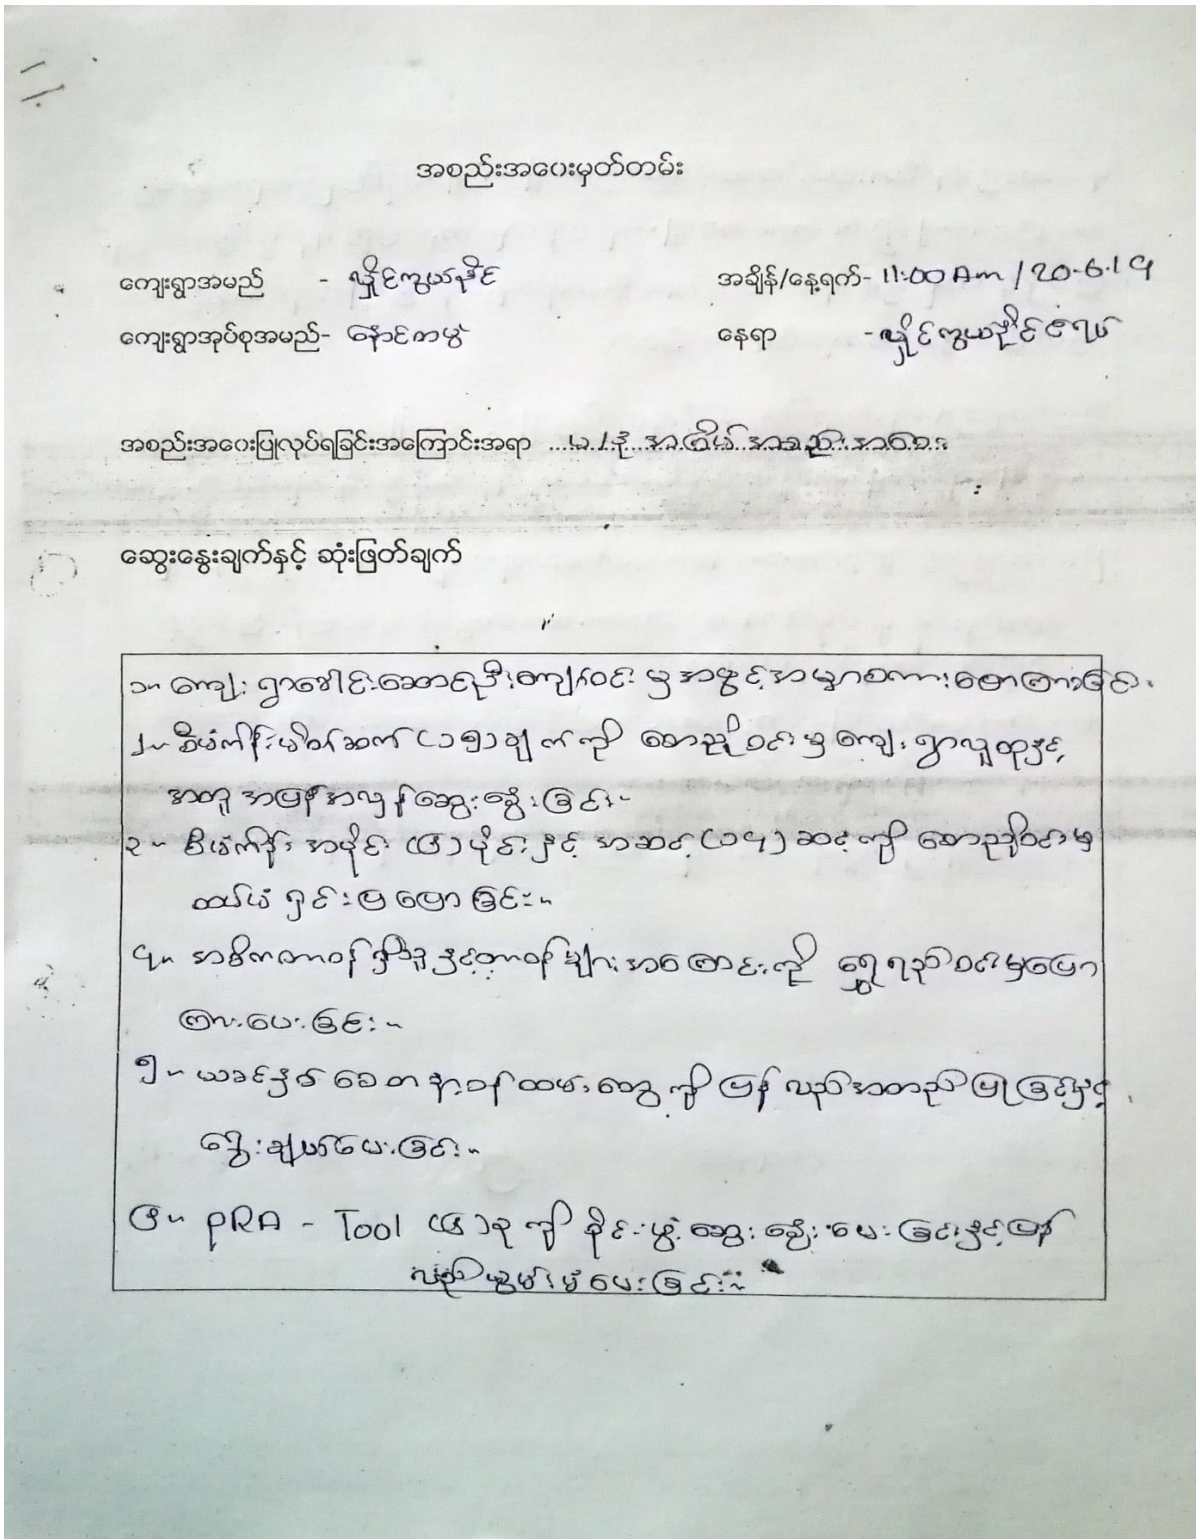 အစည်းအဝေးမှတ်တမ်း
ကျေးရွာအမည် - လှိုင်ကွယ်ခိုင် အချိန်/နေ့ရက်- 11:00 Am / 20.6.19
ကျေးရွာအုပ်စုအမည်- နောင်ကမွဲ နေရာ - လှိုင်ကွယ်ခိုင်ဇရပ်
အစည်းအဝေးပြုလုပ်ရခြင်းအကြောင်းအရာ ...ပ/နံ အကြိမ် အစည်းအဝေး
ဆွေးနွေးချက်နှင့် ဆုံးဖြတ်ချက်
၁။ ကျေးရွာခေါင်းဆောင်ဦးကျော်ဝင်းမှ အဖွင့်အမှာစကားပြောကြားခြင်း
၂။ စီမံကိန်းမိတ်ဆက် (၁၅) ချက်ကို စောညိုဝင်းမှ ကျေးရွာလူထုနှင့်
အတူ အပြန်အလှန်ဆွေးနွေးခြင်း။
၃။ စီမံကိန်း အပိုင်း (၆) ပိုင်းနှင့် အဆင့် (၁၄) ဆင့်ကို စောညိုဝင်းမှ
ထပ်မံ ရှင်းပြ ပြောခြင်း။
၄။ အဓိကတာဝန် နှင့်တာဝန်များအကြောင်းကို ရွှေရည်ဝင်းမှပြော
ကြားပေးခြင်း။
၅။ ယခင်နှစ် စေတနာ့ဝန်ထမ်းတွေကို ပြန်လည်အတည်ပြုခြင်းနှင့်
ရွေးချယ်ပေးခြင်း။
၆။ PRA - Tool (၆) ခုကို ခိုင်းဖွဲ့ဆွေးနွေးပေးခြင်းနှင့်ပြန်
လည်ပေးခြင်း။